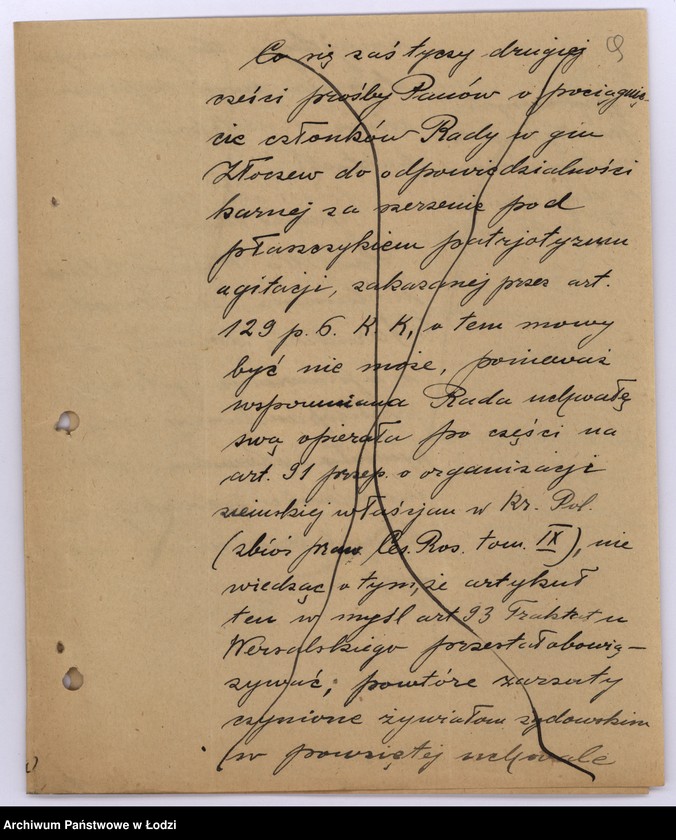 9
Co się zaś tyczy drugiej
części prośby Panów o pociągnię-
cie członków Rady w gm
Złoczew do odpowiedzialności
karnej za szerzenie pod
płaszczykiem patrjotyzmu
agitacji, zakazanej przez art.
129 p. 6. K. K, o tem mowy
być nie może, ponieważ
wspomniana Rada uchwałę
swą opierała po części na
art. 91 przep. o organizacji
ziemskiej włościan w Kr. Pol.
(zbiór praw Ces. Ros. tom. IX), nie
wiedząc o tym, że artykuł
ten w myśl art 93 Traktatu
Wersalskiego przestał obowią-
zywać; powtóre zarzuty
czynione żywiołom żydowskim
(w powziętej uchwale
Archiwum Państwowe w Łodzi